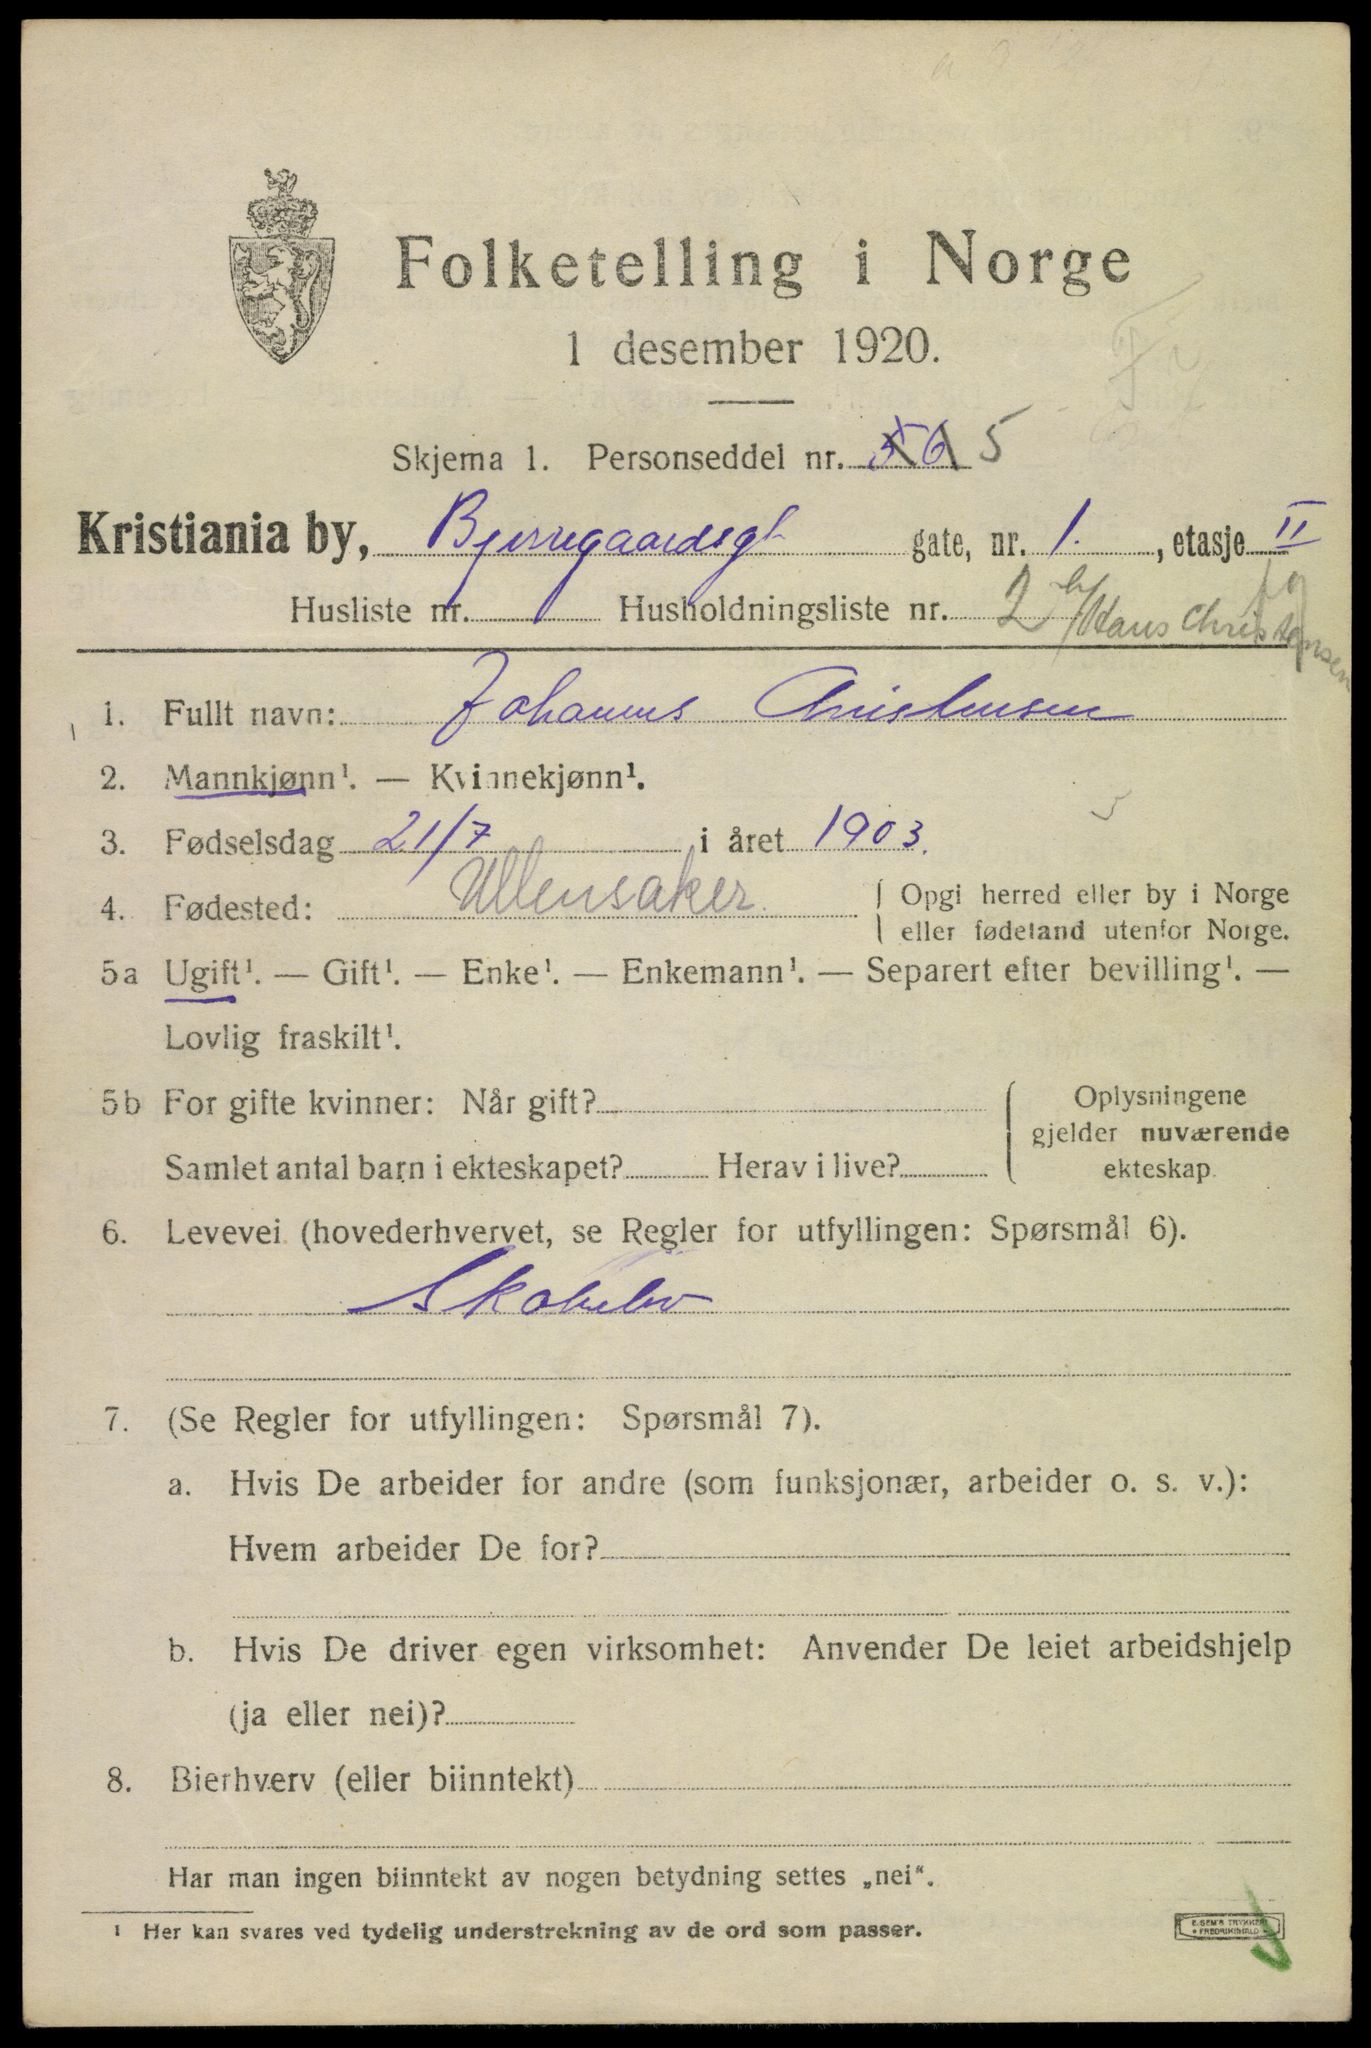 Folketelling i Norge
1 desember 1920.
Skjema 1. Personseddel nr. 56 5
Kristiania by, Bjerregaardsgt gate, nr. 1., etasje II
Husliste nr. 1 Husholdningsliste nr. 2 Hans Christensen
1. Fullt navn: Johannes Christensen
2. Mannkjønn¹. — Kvinnekjønn¹.
3. Fødselsdag 21/7 i året 1903.
4. Fødested: Ullensaker. Opgi herred eller by i Norge
eller fødeland utenfor Norge.
5a Ugift¹. — Gift¹. — Enke¹. — Enkemann¹. — Separert efter bevilling¹. —
Lovlig fraskilt¹.
5b For gifte kvinner: Når gift? Oplysningene
gjelder nuværende
Samlet antal barn i ekteskapet? Herav i live? ekteskap.
6. Levevei (hovederhvervet, se Regler for utfyllingen: Spørsmål 6).
7. (Se Regler for utfyllingen: Spørsmål 7).
a. Hvis De arbeider for andre (som funksjonær, arbeider o. s. v.):
Hvem arbeider De for?
b. Hvis De driver egen virksomhet: Anvender De leiet arbeidshjelp
(ja eller nei)?
8. Bierhverv (eller biinntekt)
Har man ingen biinntekt av nogen betydning settes „nei“.
¹ Her kan svares ved tydelig understrekning av de ord som passer.